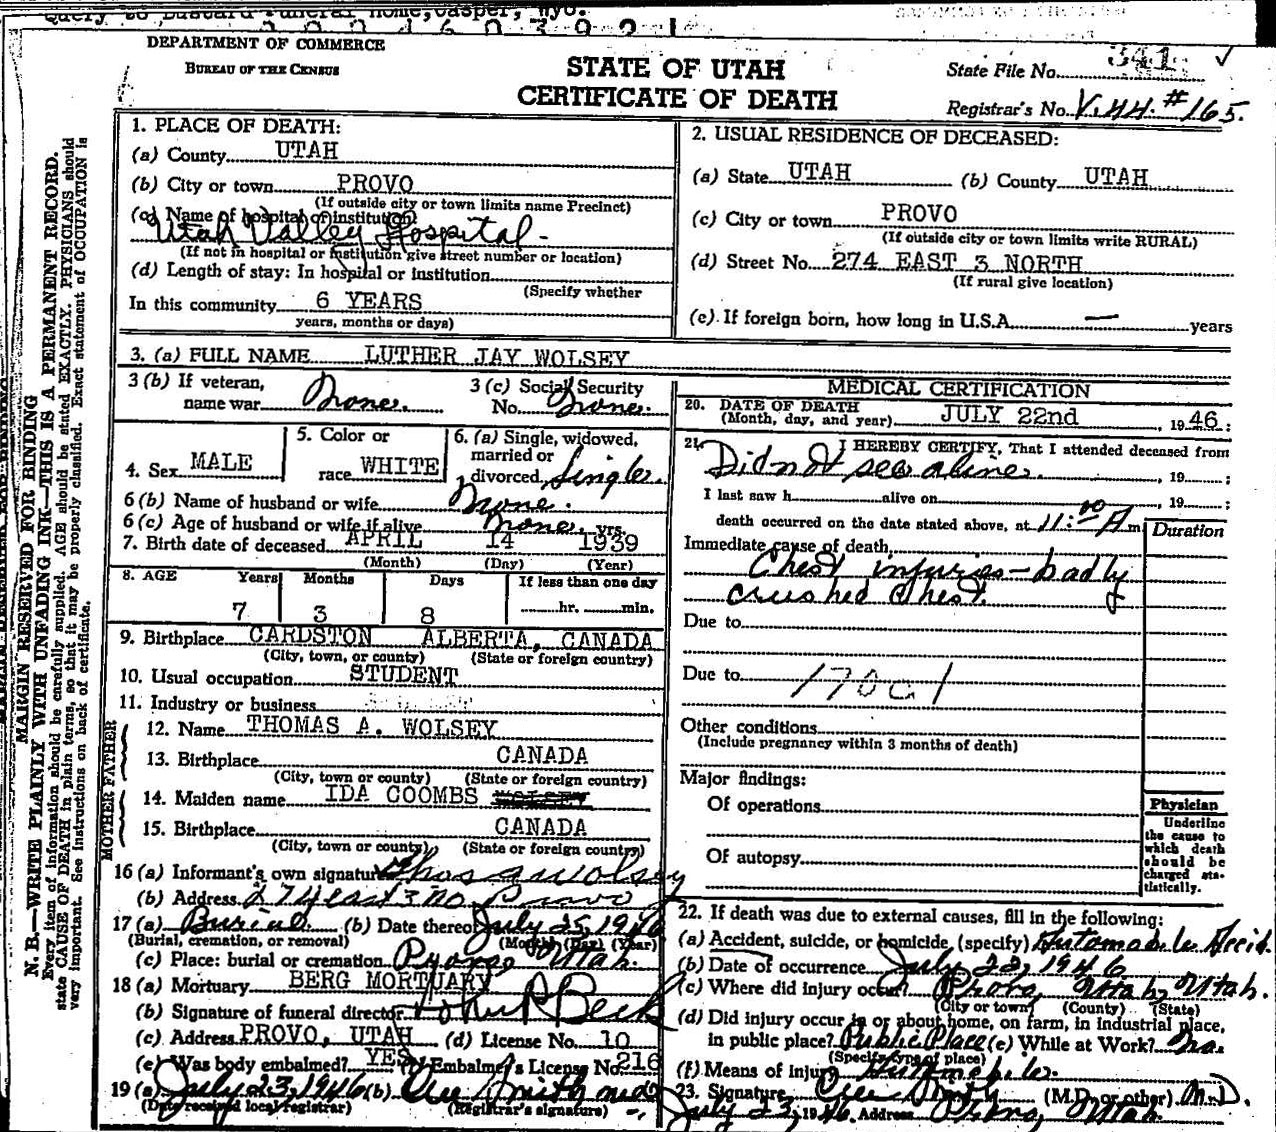 Query to Bustard Funeral Home, Casper, Wyo.
DEPARTMENT OF COMMERCE
BUREAU OF THE CENSUS
STATE OF UTAH
CERTIFICATE OF DEATH
State File No. 341 ✓
Registrar's No. V.44. #165.
MARGIN RESERVED FOR BINDING
N. B.—WRITE PLAINLY WITH UNFADING INK—THIS IS A PERMANENT RECORD.
Every item of information should be carefully supplied. AGE should be stated EXACTLY. PHYSICIANS should
state CAUSE OF DEATH in plain terms, so that it may be properly classified. Exact statement of OCCUPATION is
very important. See instructions on back of certificate.
1. PLACE OF DEATH:
(a) County UTAH
(b) City or town PROVO
(If outside city or town limits name Precinct)
(c) Name of hospital or institution:
Utah Valley Hospital-
(If not in hospital or institution give street number or location)
(d) Length of stay: In hospital or institution
(Specify whether
In this community 6 YEARS
years, months or days)
2. USUAL RESIDENCE OF DECEASED:
(a) State UTAH (b) County UTAH
(c) City or town PROVO
(If outside city or town limits write RURAL)
(d) Street No. 274 EAST 3 NORTH
(If rural give location)
(e) If foreign born, how long in U.S.A. — years
3. (a) FULL NAME LUTHER JAY WOLSEY
3 (b) If veteran,
name war None.
3 (c) Social Security
No. None.
4. Sex MALE
5. Color or
race WHITE
6. (a) Single, widowed,
married or
divorced, Single.
6 (b) Name of husband or wife None.
6 (c) Age of husband or wife if alive None. yrs.
7. Birth date of deceased APRIL 14 1939
(Month) (Day) (Year)
8. AGE Years Months Days If less than one day
7 3 8 hr. min.
9. Birthplace CARDSTON ALBERTA, CANADA
(City, town, or county) (State or foreign country)
10. Usual occupation STUDENT
11. Industry or business
FATHER
12. Name THOMAS A. WOLSEY
13. Birthplace CANADA
(City, town or county) (State or foreign country)
MOTHER
14. Maiden name IDA COOMBS WOLSEY
15. Birthplace CANADA
(City, town or county) (State or foreign country)
16 (a) Informant's own signature Thos A Wolsey
(b) Address 274 east 3 no Provo
17 (a) Burial (b) Date thereof July 25, 1946
(Burial, cremation, or removal) (Month) (Day) (Year)
(c) Place: burial or cremation Provo Utah.
18 (a) Mortuary BERG MORTUARY
(b) Signature of funeral director Beck
(c) Address PROVO, UTAH (d) License No. 10
(e) Was body embalmed? YES (f) Embalmer's License No. 216
19 (a) July 23, 1946 (b)
(Date received local registrar) (Registrar's signature)
MEDICAL CERTIFICATION
20. DATE OF DEATH
(Month, day, and year) JULY 22nd, 1946;
21. I HEREBY CERTIFY, That I attended deceased from
Did not see alive., 19 ;
I last saw h alive on , 19 ;
death occurred on the date stated above, at 11:00 A m
Duration
Immediate cause of death
Chest injuries - badly
crushed chest.
Due to
Due to 170c1
Other conditions
(Include pregnancy within 3 months of death)
Major findings:
Of operations
Of autopsy
Physician
Underline
the cause to
which death
should be
charged sta-
tistically.
22. If death was due to external causes, fill in the following:
(a) Accident, suicide, or homicide (specify) Automobile Accid.
(b) Date of occurrence July 22, 1946
(c) Where did injury occur? Provo, Utah, Utah.
(City or town) (County) (State)
(d) Did injury occur in or about home, on farm, in industrial place,
in public place? Public Place (e) While at Work? No.
(Specify type of place)
(f) Means of injury Automobile.
23. Signature (M.D. or other) M.D.
July 23, 1946. Address Provo, Utah.